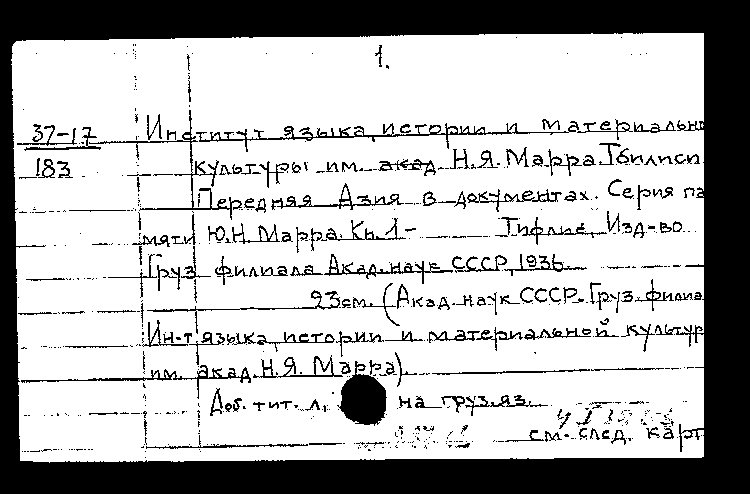 1.
37-17 Институт языка, истории и материальн
183 культуры им. акад. Н.Я. Марра. Тбилиси
Передняя Азия в документах. Серия па
мяти Ю.Н. Марра. Кн. 1- Тифлис, Изд-во
Груз. филиала Акад. наук СССР, 1936
23см. (Акад. наук СССР. Груз. филиа
Ин-т языка, истории и материальной культур
им. акад. Н.Я. Марра).
Доб. тит. л. на груз. яз.
см. след. карт